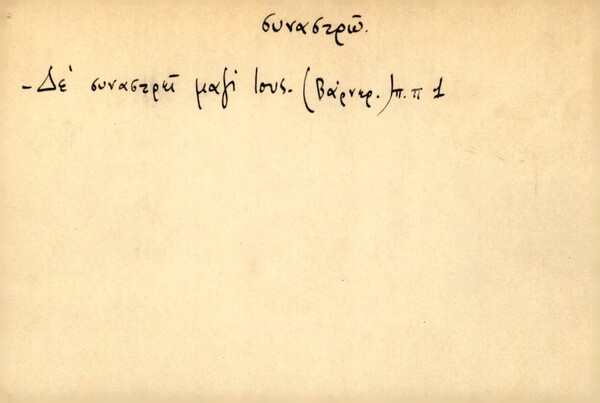 συναστρῶ.
- Δὲ συναστρεῖ μαζί τους. (Βάρνερ.) π. π 1